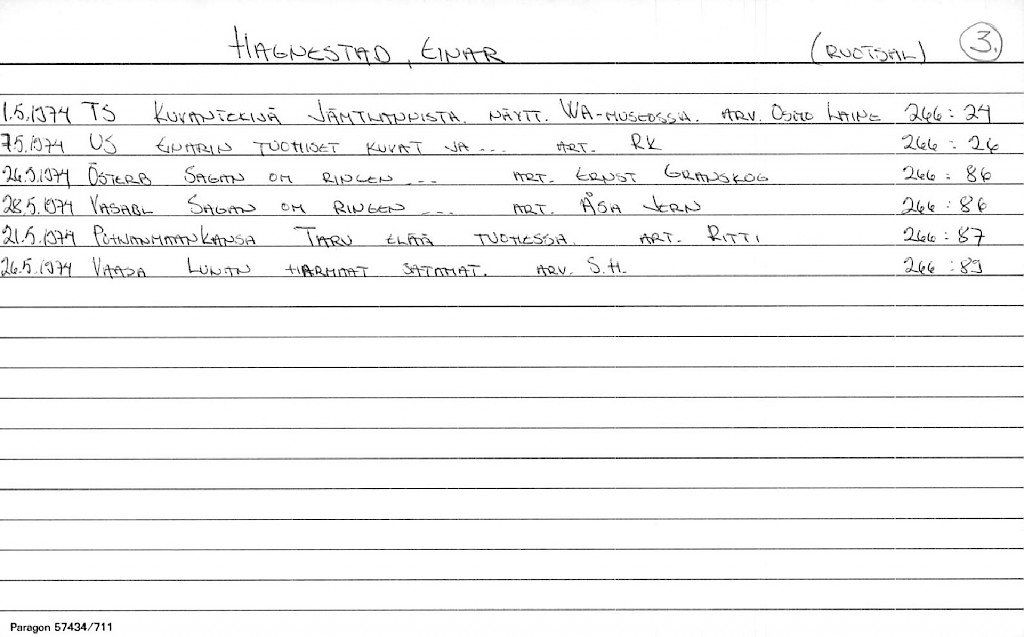 HAGNESTAD, EINAR (RUOTSAL) 3.
1.5.1974 TS KUVANTEKIJÄ JÄMTLANNISTA. NÄYTT. WA-MUSEOSSA. ARV. OSMO LAINE 266:24
7.5.1974 US EINARIN TUOMISET KUVAT JA ... ART. RK 266:26
26.5.1974 ÖSTERB SAGAN OM RINGEN ... ART. ERNST GRANSKOG 266:86
28.5.1974 VASABL SAGAN OM RINGEN ... ART. ÅSA JERN 266:86
21.5.1974 POHJANMAANKANSA TARU ELÄÄ TUOMESSA. ART. RITTI 266:87
26.5.1974 VAASA HARMAAT SATAMAT. ARV. S.H. 266:89
Paragon 57434/711